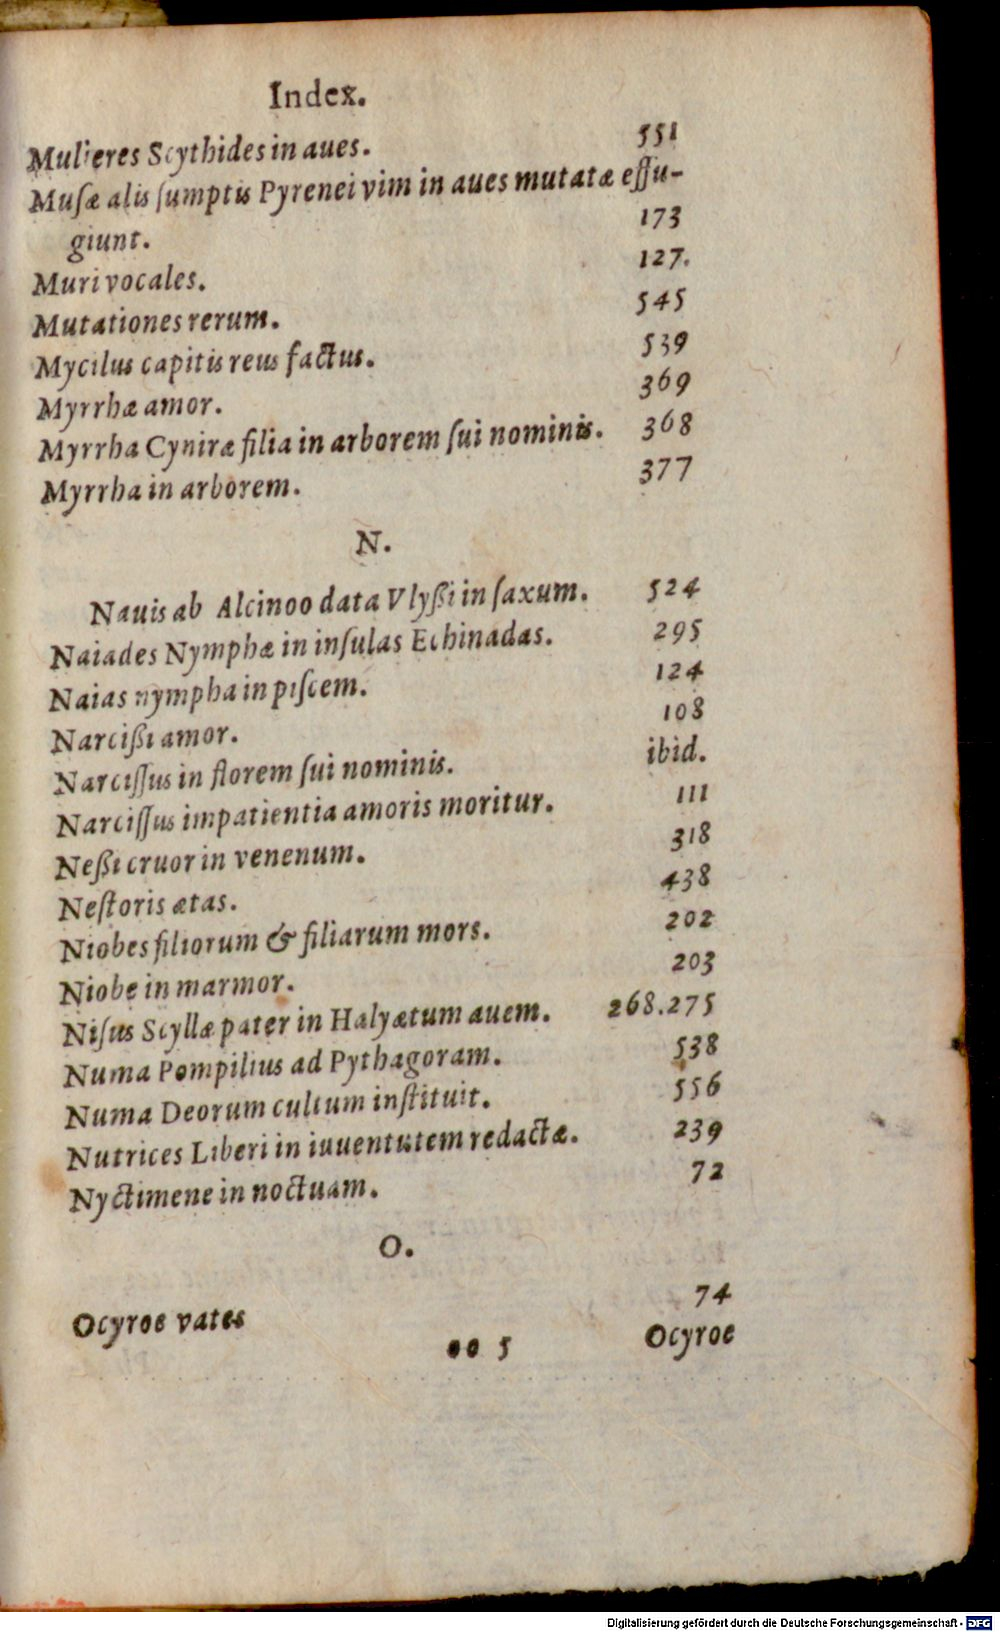 Index.
Mulieres Scythides in aues. 551
Musæ alis ſumptis Pyrenei vim in aues mutatæ effu-
giunt. 173
Muri vocales. 127.
Mutationes rerum. 545
Mycilus capitis reus factus. 539
Myrrhæ amor. 369
Myrrha Cyniræ filia in arborem ſui nominis. 368
Myrrha in arborem. 377
N.
Nauis ab Alcinoo data Vlyßi in ſaxum. 524
Naiades Nymphæ in inſulas Echinadas. 295
Naias nympha in piſcem. 124
Narcißi amor. 108
Narciſſus in florem ſui nominis. ibid.
Narciſſus impatientia amoris moritur. 111
Neßi cruor in venenum. 318
Neſtoris ætas. 438
Niobes filiorum & filiarum mors. 202
Niobe in marmor. 203
Niſus Scyllæ pater in Halyætum auem. 268.275
Numa Pompilius ad Pythagoram. 538
Numa Deorum cultum inſtituit. 556
Nutrices Liberi in iuuentutem redactæ. 239
Nyctimene in noctuam. 72
O.
Ocyroe vates 74
oo 5 Ocyroe
Digitalisierung gefördert durch die Deutsche Forschungsgemeinschaft - DFG